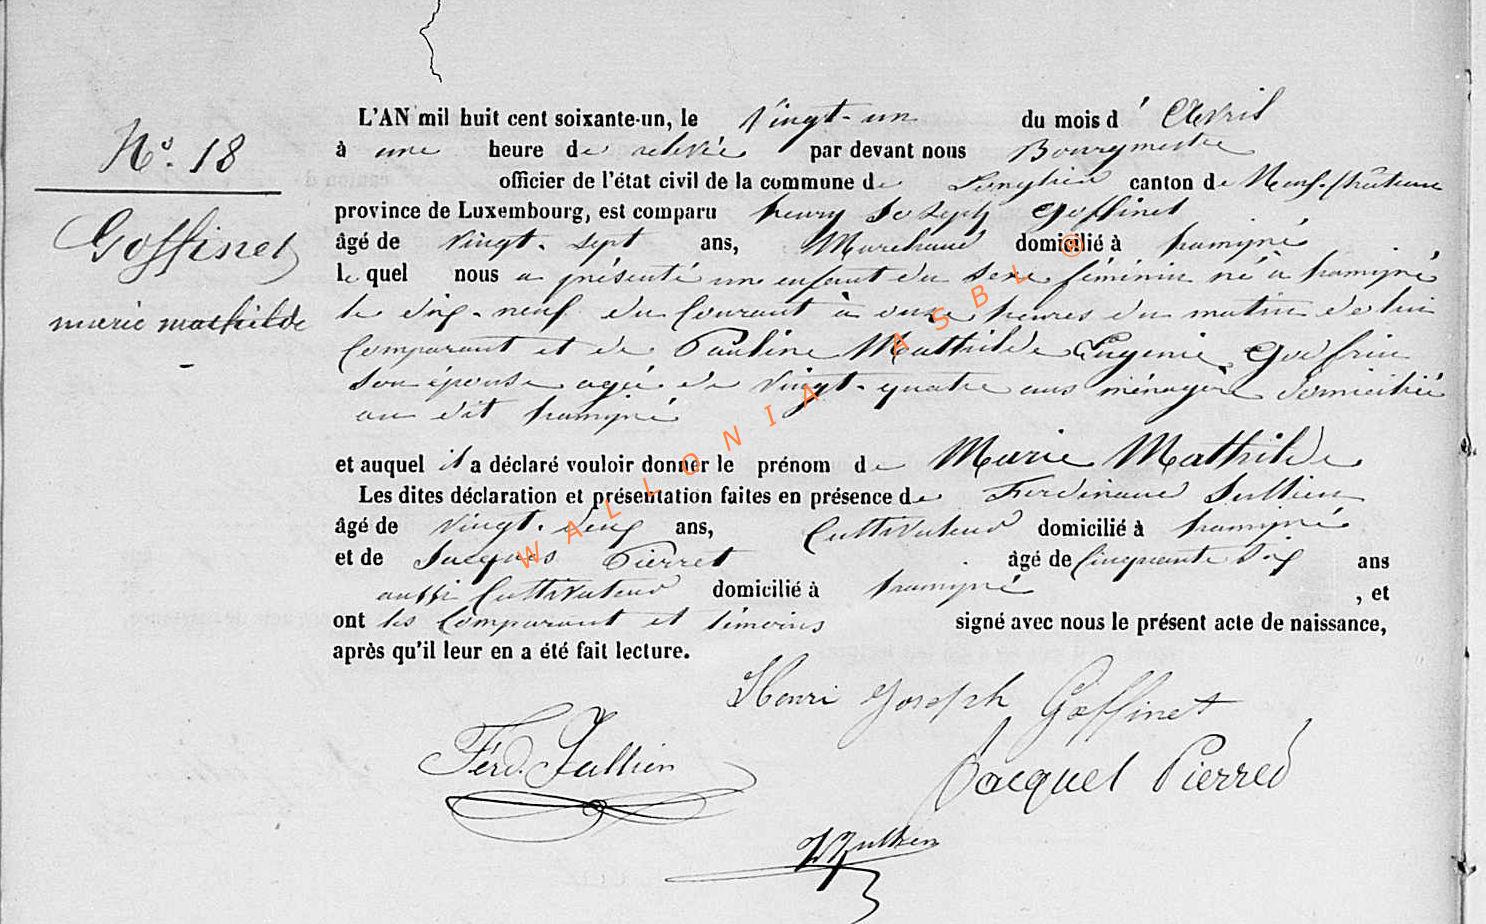 N°. 18
Goffinet
marie mathilde
L'AN mil huit cent soixante-un, le vingt-un du mois d' Avril
à une heure de relevée par devant nous Bourgmestre
officier de l'état civil de la commune de Longlier canton de Neufchâteau
province de Luxembourg, est comparu henry Joseph Goffinet
âgé de vingt-sept ans, Marchand domicilié à hamipré
le quel nous a présenté un enfant du sexe féminin né à hamipré
le dix-neuf du Courant à onze heures du matin de lui
Comparant et de Pauline Mathilde Eugenie Godfrin
son épouse agée de vingt-quatre ans ménagère domiciliée
au dit hamipré
et auquel il a déclaré vouloir donner le prénom de Marie Mathilde
Les dites déclaration et présentation faites en présence de Ferdinand Jullien
âgé de vingt-deux ans, Cultivateur domicilié à hamipré
et de Jacques Pierret âgé de Cinquante six ans
aussi Cultivateur domicilié à hamipré , et
ont les Comparant et témoins signé avec nous le présent acte de naissance,
après qu'il leur en a été fait lecture.
Henri Joseph Goffinet
Ferd. Jullien
Jacquel Pierred
Jullien
WALLONIA ASBL ®